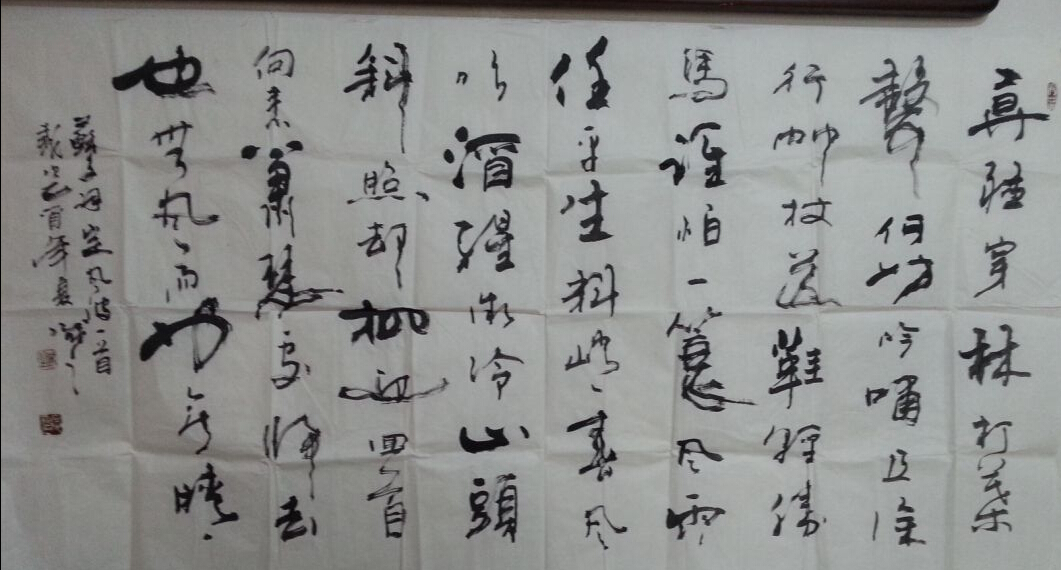 莫聽穿林打葉
聲何妨吟嘯且徐
行竹杖芒鞋輕勝
馬誰怕一蓑风雨
任平生料峭春风
吹酒醒微冷山頭
斜照却相迎回首
向来蕭瑟處歸去
也無风雨也无晴
蘇定风波一首
年夏